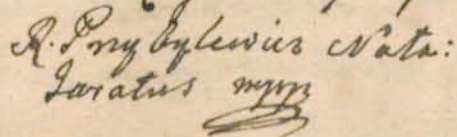 R. Przybylewicz Nota:
Juratus mppr